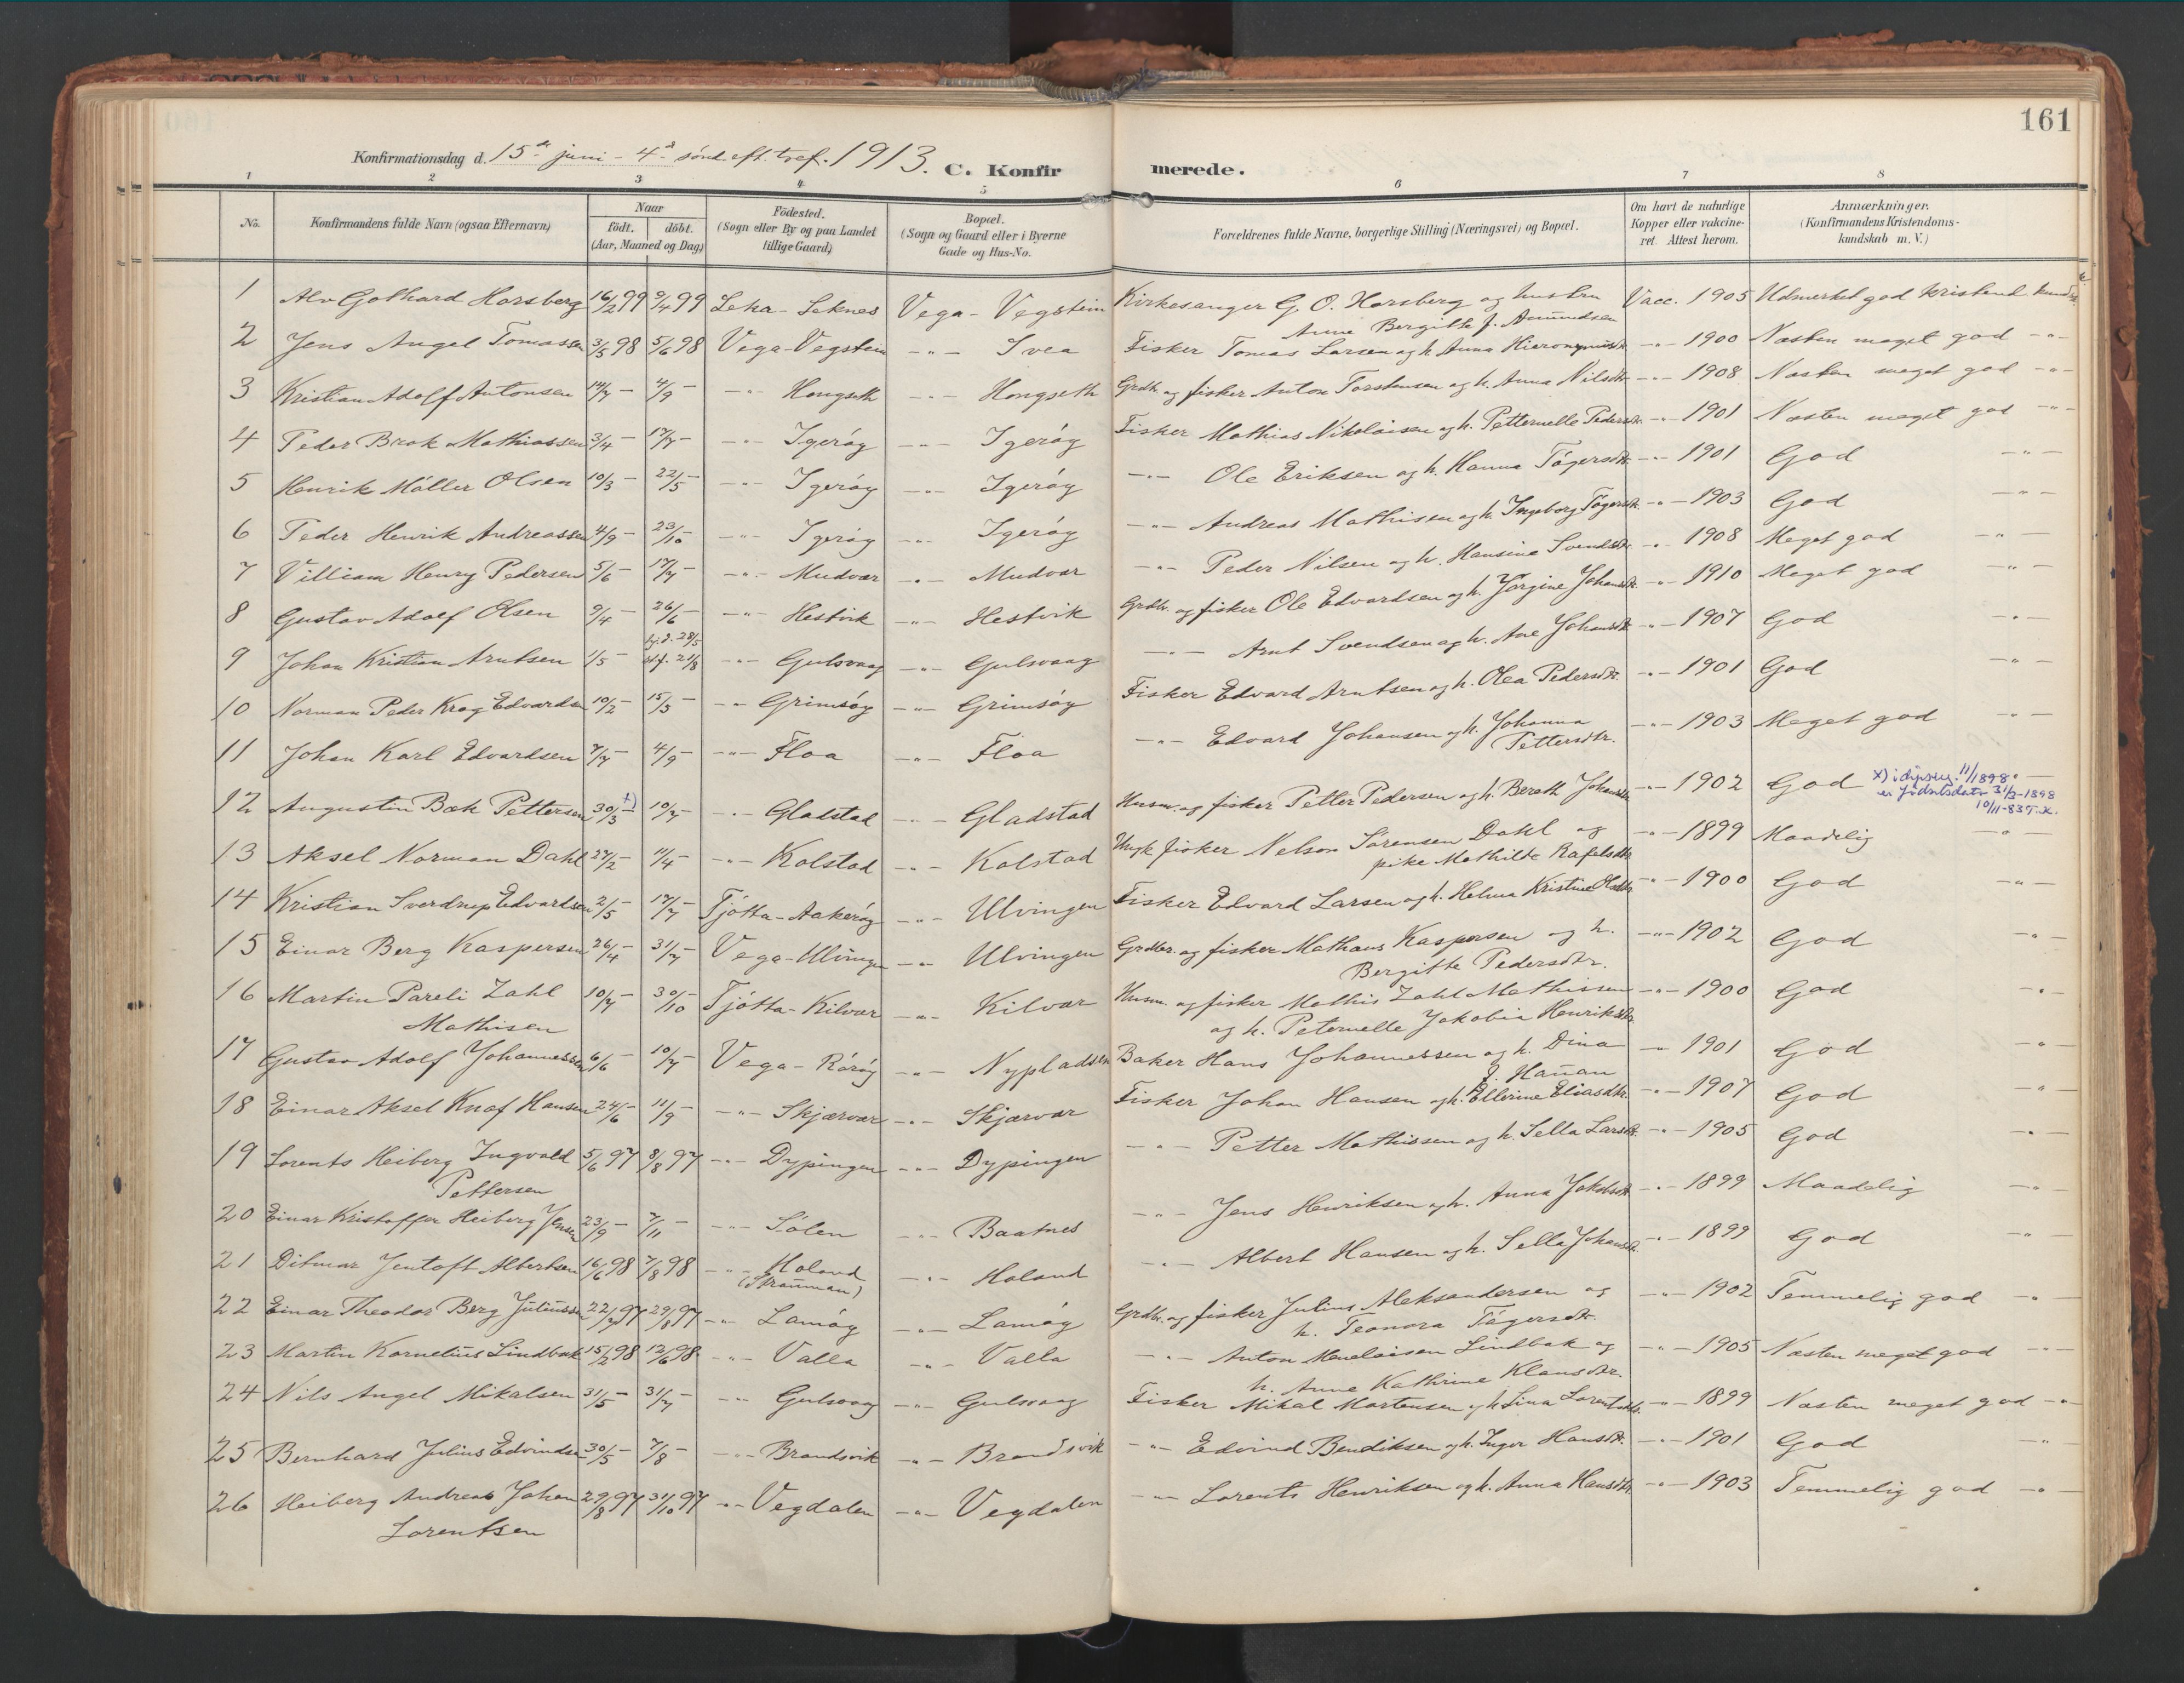 161
Konfirmationsdag d. 15de juni - 4de sönd. eft. tref. 1913. C. Konfirmerede.
1 2 3 4 5 6 7 8
No. Konfirmandens fulde Navn (ogsaa Efternavn) Naar födt. döbt. (Aar, Maaned og Dag) Födested. (Sogn eller By og paa Landet tillige Gaard) Bopæl. (Sogn og Gaard eller i Byerne Gade og Hus-No. Forældrenes fulde Navne, borgerlige Stilling (Næringsvei) og Bopæl. Om havt de naturlige Kopper eller vakcineret. Attest herom. Anmærkninger. (Konfirmandens Kristendomskundskab m. V.)
1 Alv Gothard Horsberg 16/2 99 9/4 99 Leka - Leknes Vega - Vegstein Kirkesanger G. O. Horsberg og hustru Anne Bergitte f. Amundsen Vacc. 1905 Udmerket god kristend. kundsk.
2 Jens Angel Tomassen 3/5 98 5/6 98 Vega - Vegstein -"- Svea Fisker Tomas Larsen og h. Anna Hieronymusdtr. -"- 1900 Næsten meget god -"-
3 Kristian Adolf Antonsen 14/7 - 4/9 - -"- Hongseth -"- Hongseth Grdb. og fisker Anton Torstensen og h. Anna Nilsdtr. -"- 1908 Næsten meget god -"-
4 Peder Brak Mathiassen 3/4 - 17/7 - -"- Igeröy -"- Igeröy Fisker Mathias Nikolaisen og h. Petternelle Pedersdtr. -"- 1901 Næsten meget god -"-
5 Henrik Möller Olsen 10/3 - 22/5 - -"- Igeröy -"- Igeröy -"- Ole Eriksen og h. Hanna Tögersdtr. -"- 1901 God -"-
6 Peder Henrik Andreassen 4/9 - 23/10 - -"- Igeröy -"- Igeröy -"- Andreas Mathisen og h. Ingeborg Tögersdtr. -"- 1903 God -"-
7 Villiam Henry Pedersen 5/6 - 17/7 - -"- Mudvær -"- Mudvær -"- Peder Nilsen og h. Hansine Svendsdtr. -"- 1908 Meget god -"-
8 Gustav Adolf Olsen 9/4 - 26/6 - -"- Hestvik -"- Hestvik Grdbr. og fisker Ole Edvardsen og h. Jörgine Johansdtr. -"- 1910 Meget god -"-
9 Johan Kristian Arntsen 1/5 - hj.d. 28/5 stf. 21/8 -"- Gulsvaag -"- Gulsvaag -"- Arnt Svendsen og h. Ane Johansdtr. -"- 1907 God -"-
10 Norman Peder Krog Edvardsen 10/2 - 15/5 - -"- Grimsöy -"- Grimsöy Fisker Edvard Arntsen og h. Olea Pedersdtr. -"- 1901 God -"-
11 Johan Karl Edvardsen 7/7 - 4/9 - -"- Floa -"- Floa -"- Edvard Johansen og h. Johanna Pettersdtr. -"- 1903 Meget god -"-
12 Augustin Bæk Pettersen 30/3 x) - 10/7 - -"- Gladstad -"- Gladstad Husm. og fisker Petter Pedersen og h. Bereth Johansdtr. -"- 1902 God x) i dåpsreg. 11/1898 er fødselsdato 31/3-1898 10/11-83 T.K.
13 Aksel Norman Dahl 27/2 - 11/4 - -"- Kolstad -"- Kolstad Ungk. fisker Nelson Sörensen Dahl og pike Mathilde Rafelsdtr. -"- 1899 Maadelig -"-
14 Kristian Sverdrup Edvardsen 2/5 - 17/7 - Tjötta - Aakeröy -"- Ulvingen Fisker Edvard Larsen og h. Helma Kristine Olsdtr. -"- 1900 God -"-
15 Einar Berg Kaspersen 26/4 - 31/7 - Vega - Ulvingen -"- Ulvingen Grdbr. og fisker Mathæus Kaspersen og h. Bergitte Pedersdtr. -"- 1902 God -"-
16 Martin Pareli Zahl Mathisen 10/7 - 30/10 - Tjötta - Kilvær -"- Kilvær Husm. og fisker Mathis Zahl Mathissen og h. Peternelle Jakobia Henriksdtr. -"- 1900 God -"-
17 Gustav Adolf Johannessen 6/6 - 10/7 - Vega - Röröy -"- Nypladsen Baker Hans Johannessen og h. Dina J. Hanan -"- 1901 God -"-
18 Einar Aksel Knof Hansen 24/6 - 11/9 - -"- Skjærvær -"- Skjærvær Fisker Johan Hansen og h. Ellerine Eliasdtr. -"- 1907 God -"-
19 Lorents Heiberg Ingvald Pettersen 5/6 97 8/8 97 -"- Dypingen -"- Dypingen -"- Petter Mathissen og h. Sella Larsdtr. -"- 1905 God -"-
20 Einar Kristoffer Heiberg Jensen 23/9 - 7/11 - -"- Sölen -"- Baatnes -"- Jens Henriksen og h. Anna Jakobsdtr. -"- 1899 Maadelig -"-
21 Ditmar Jentoft Albertsen 16/6 98 7/8 98 -"- Holand -"- Holand -"- Albert Hansen og h. Sella Johansdtr. -"- 1899 God -"-
22 Einar Theodor Berg Juliussen 22/7 97 29/8 97 -"- Lamöy -"- Lamöy Grdbr. og fisker Julius Aleksandersen og h. Teonora Tögersdtr. -"- 1902 Temmelig god -"-
23 Martin Kornelius Lindbak 15/2 98 12/6 98 -"- Valla -"- Valla -"- Anton Menelaisen Lindbak og h. Anne Kathrine Klausdtr. -"- 1905 Næsten meget god -"-
24 Nils Angel Mikalsen 31/5 - 31/7 - -"- Gulsvaag -"- Gulsvaag Fisker Mikal Mortensen og h. Lina Lorentsdtr. -"- 1899 Næsten meget god -"-
25 Bernhard Julius Edvindsen 30/5 - 7/8 - -"- Brandsvik -"- Brandsvik -"- Edvind Bendiksen og h. Inger Hansdtr. -"- 1901 God -"-
26 Heiberg Andreas Johan Lorentsen 29/8 97 31/10 97 -"- Vegdalen -"- Vegdalen -"- Lorents Henriksen og h. Anna Hansdtr. -"- 1903 Temmelig god -"-